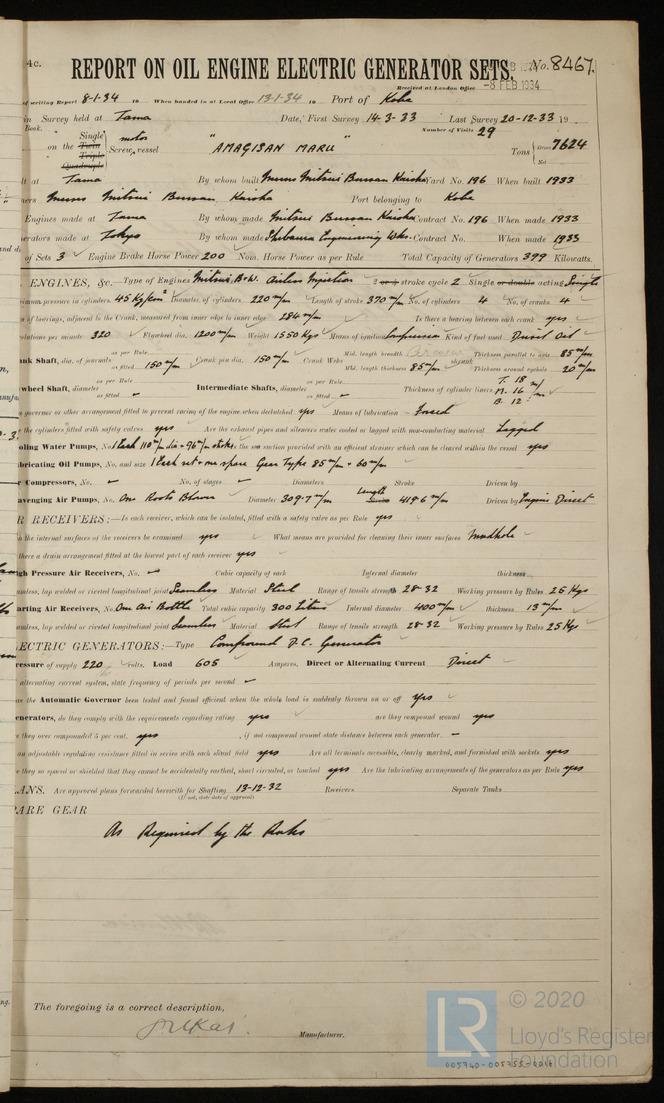 4c.
REPORT ON OIL ENGINE ELECTRIC GENERATOR SETS. No. 8467.
Received at London Office -8 FEB 1934
of writing Report 8-1-34 19 When handed in at Local Office 13-1-34 19 Port of Kobe
in Survey held at Tama Date, First Survey 14-3-33 Last Survey 20-12-33 19
Book. Number of Visits 29
on the Single Twin Triple Quadruple Screw motor vessel "AMAGISAN MARU" Tons Gross 7624 Net
lt at Tama By whom built Messrs Mitsui Bussan Kaisha Yard No. 196 When built 1933
ners Messrs Mitsui Bussan Kaisha Port belonging to Kobe
Engines made at Tama By whom made Mitsui Bussan Kaisha Contract No. 196 When made 1933
erators made at Tokyo By whom made Shibaura Engineering Wks. Contract No. When made 1933
of Sets 3 Engine Brake Horse Power 200 Nom. Horse Power as per Rule Total Capacity of Generators 399 Kilowatts.
ENGINES, &c. Type of Engines Mitsui B+W. Airless Injection 2 or 4 stroke cycle 2 Single or double acting Single
ximum pressure in cylinders 45 Kg/cm² Diameter of cylinders 220 m/m Length of stroke 370 m/m No. of cylinders 4 No. of cranks 4
n of bearings, adjacent to the Crank, measured from inner edge to inner edge 284 m/m Is there a bearing between each crank yes
volutions per minute 320 Flywheel dia. 1200 m/m Weight 1550 Kgs Means of ignition Compression Kind of fuel used Diesel Oil
ank Shaft, dia. of journals as per Rule as fitted 150 m/m Crank pin dia. 150 m/m Crank Webs Mid. length breadth Mid. length thickness 85 m/m shrunk Thickness parallel to axis 85 m/m Thickness around eyehole 20 m/m
wheel Shaft, diameter as per Rule as fitted Intermediate Shafts, diameter as per Rule as fitted Thickness of cylinder liners T. 18 M. 16 B. 12 m/m
a governor or other arrangement fitted to prevent racing of the engine when declutched yes Means of lubrication Forced
e the cylinders fitted with safety valves yes Are the exhaust pipes and silencers water cooled or lagged with non-conducting material Lagged
oling Water Pumps, No. 1 Each 110 m/m dia. + 96 m/m stroke. the sea suction provided with an efficient strainer which can be cleared within the vessel yes
bricating Oil Pumps, No. and size 1 Each set + one spare Gear Type 85 m/m + 60 m/m
r Compressors, No. - No. of stages - Diameters Stroke Driven by
avenging Air Pumps, No. One Roots Blower Diameter 309.7 m/m Length Stroke 419.6 m/m Driven by Engine Direct
R RECEIVERS:—Is each receiver, which can be isolated, fitted with a safety valve as per Rule yes
n the internal surfaces of the receivers be examined yes What means are provided for cleaning their inner surfaces Mudhole
there a drain arrangement fitted at the lowest part of each receiver yes
igh Pressure Air Receivers, No. - Cubic capacity of each Internal diameter thickness
amless, lap welded or riveted longitudinal joint Seamless Material Steel Range of tensile strength 28-32 Working pressure by Rules 25 Kgs
arting Air Receivers, No. One Air Bottle Total cubic capacity 300 Litres Internal diameter 400 m/m thickness 13 m/m
amless, lap welded or riveted longitudinal joint Seamless Material Steel Range of tensile strength 28-32 Working pressure by Rules 25 Kgs
LECTRIC GENERATORS:—Type Compound D.C. Generator
ressure of supply 220 volts. Load 605 Amperes. Direct or Alternating Current Direct
alternating current system, state frequency of periods per second -
as the Automatic Governor been tested and found efficient when the whole load is suddenly thrown on or off yes
enerators, do they comply with the requirements regarding rating yes are they compound wound yes
e they over compounded 5 per cent. yes , if not compound wound state distance between each generator -
an adjustable regulating resistance fitted in series with each shunt field yes Are all terminals accessible, clearly marked, and furnished with sockets yes
e they so spaced or shielded that they cannot be accidentally earthed, short circuited, or touched yes Are the lubricating arrangements of the generators as per Rule yes
LANS. Are approved plans forwarded herewith for Shafting 13-12-32 Receivers Separate Tanks
(If not, state date of approval)
PARE GEAR
As Required by the Rules
The foregoing is a correct description,
Manufacturer.
LR © 2020
Lloyd's Register
Foundation